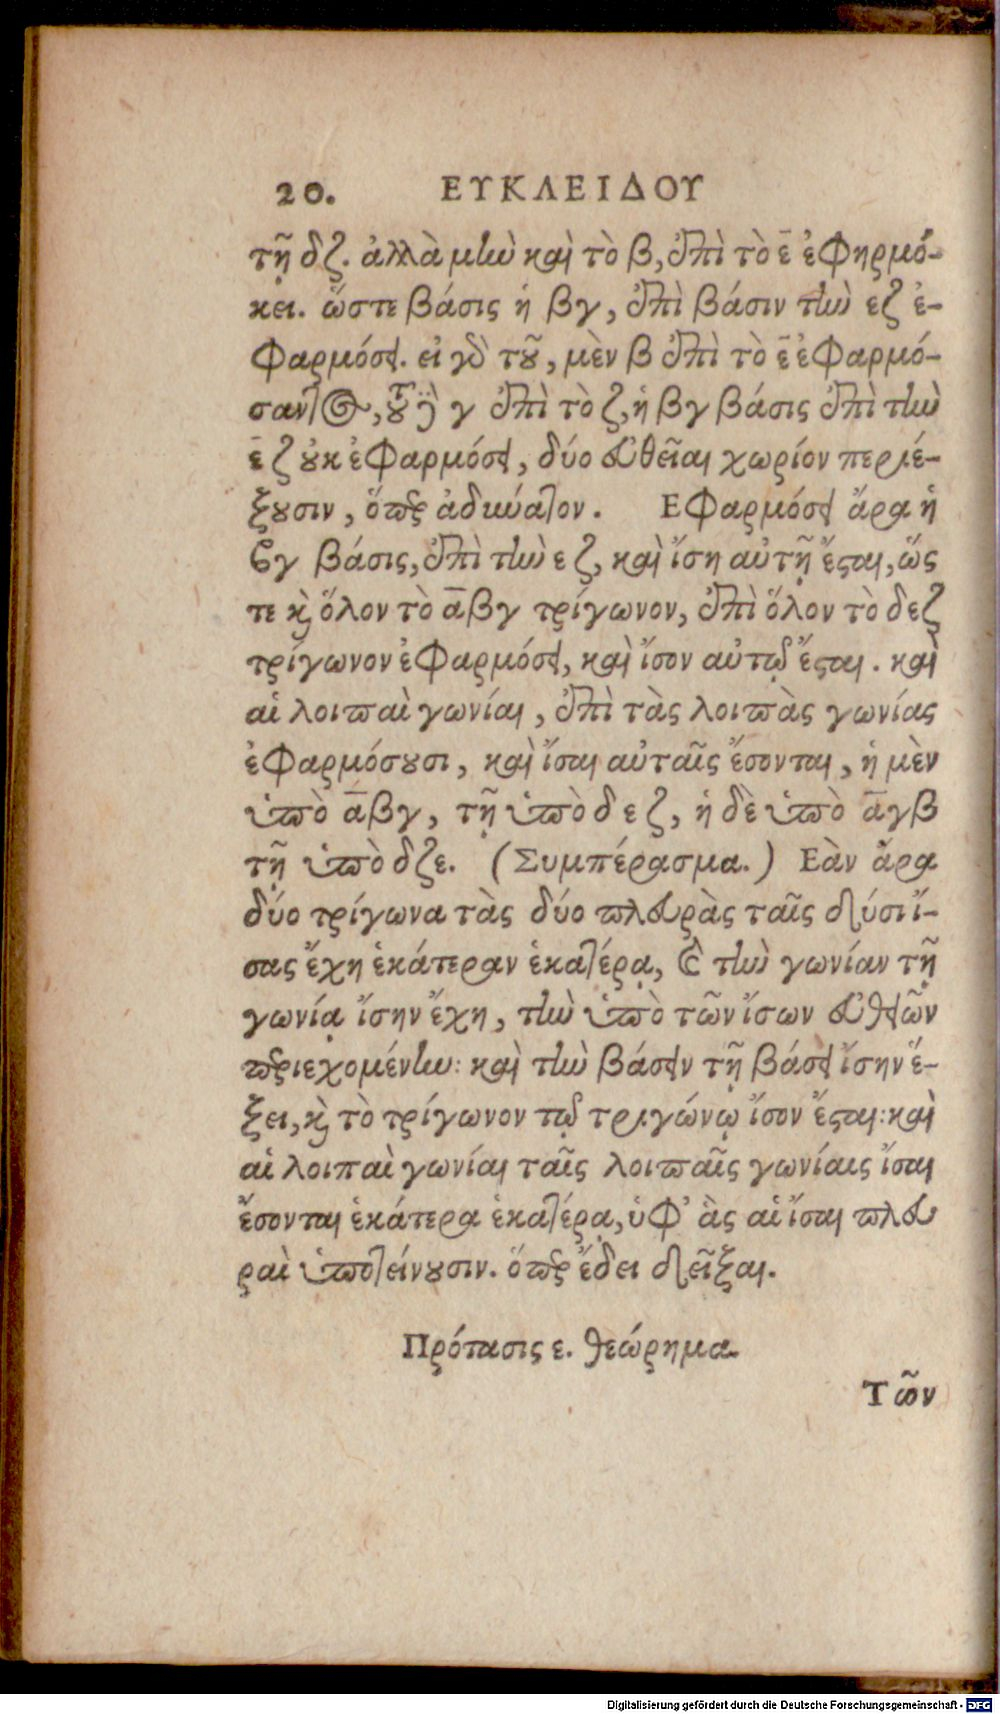 20. ΕΥΚΛΕΙΔΟΥ
τῇ δζ. ἀλλὰ μὴν καὶ τὸ β, ἐπὶ τὸ ε̄ ἐφηρμό-
κει. ὥστε βάσις ἡ βγ, ἐπὶ βάσιν τὴν εζ ἐ-
φαρμόσει. εἰ γὰρ τοῦ, μὲν β ἐπὶ τὸ ε̄ ἐφαρμό-
σαντος, τοῦ δὲ γ ἐπὶ τὸ ζ, ἡ βγ βάσις ἐπὶ τὴν
ε̄ζ οὐκ ἐφαρμόσει, δύο εὐθεῖαι χωρίον περιέ-
ξουσιν, ὅπερ ἀδύνατον. Εφαρμόσει ἄρα ἡ
βγ βάσις, ἐπὶ τὴν εζ, καὶ ἴση αὐτῇ ἔσται, ὥς
τε καὶ ὅλον τὸ ᾱβγ τρίγωνον, ἐπὶ ὅλον τὸ δεζ
τρίγωνον ἐφαρμόσει, καὶ ἴσον αὐτῷ ἔσται. καὶ
αἱ λοιπαὶ γωνίαι, ἐπὶ τὰς λοιπὰς γωνίας
ἐφαρμόσουσι, καὶ ἴσαι αὐταῖς ἔσονται, ἡ μὲν
ὑπὸ ᾱβγ, τῇ ὑπὸ δεζ, ἡ δὲ ὑπὸ ᾱγβ
τῇ ὑπὸ δζε. (Συμπέρασμα.) Εὰν ἄρα
δύο τρίγωνα τὰς δύο πλευρὰς ταῖς δύσι ἴ-
σας ἔχη ἑκάτεραν ἑκατέρᾳ, καὶ τὴν γωνίαν τῇ
γωνίᾳ ἴσην ἔχη, τὴν ὑπὸ τῶν ἴσων εὐθειῶν
περιεχομένην: καὶ τὴν βάσειν τῇ βάσει ἴσην ἕ-
ξει, καὶ τὸ τρίγωνον τῷ τριγώνῳ ἴσον ἔσται: καὶ
αἱ λοιπαὶ γωνίαι ταῖς λοιπαῖς γωνίαις ἴσαι
ἔσονται ἑκάτερα ἑκατέρᾳ, ὑφ' ἃς αἱ ἴσαι πλευ
ραὶ ὑποτείνουσιν. ὅπερ ἔδει δεῖξαι.
Πρότασις ε. θεώρημα.
Τῶν
Digitalisierung gefördert durch die Deutsche Forschungsgemeinschaft - DFG